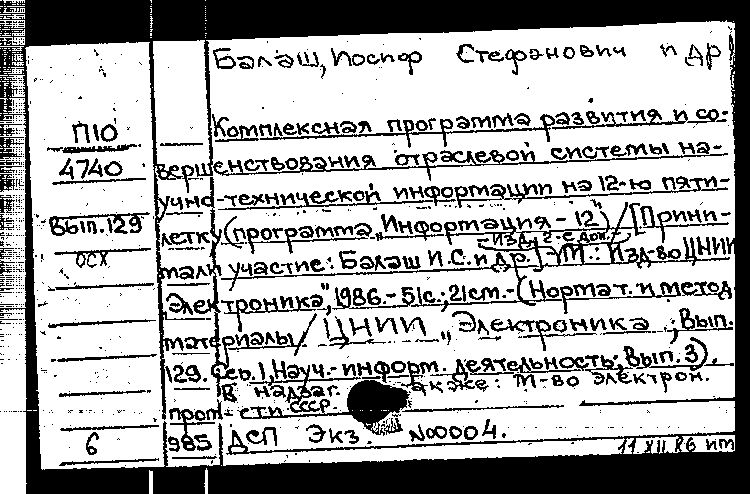 Балаш, Иосиф Стефанович и др
Комплексная программа развития и со-
П10
4740
вершенствования отраслевой системы на-
учно-технической информации на 12-ю пяти-
Вып.129
летку (программа „Информация-12") / [Прини-
ОСХ
изд. 2-е доп.
мали участие: Балаш И.С. и др.] - М.: Изд-во ЦНИИ
„Электроника", 1986.- 51с.; 21см.- (Нормат. и метод.
материалы / ЦНИИ „Электроника; Вып.
129. Сер. 1, Науч.-информ. деятельность; Вып. 3).
В надзаг. также: М-во электрон.
пром-сти СССР.
6
985 ДСП Экз. N00004.
11 XII 86